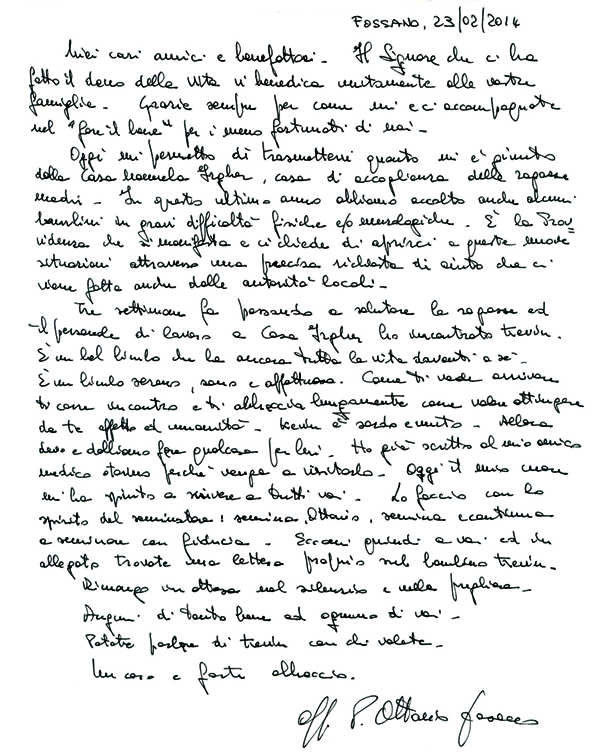 FOSSANO, 23/02/2014
Miei cari amici e benefattori - Il Signore che ci ha
fatto il dono della vita vi benedica unitamente alle vostre
famiglie - Grazie sempre per come mi e ci accompagnate
nel "fare il bene" per i meno fortunati di noi -
Oggi mi permetto di trasmettervi quanto mi è giunto
dalla Casa , casa di accoglienza delle ragazze
madri - In questo ultimo anno abbiamo accolto anche alcuni
bambini in gravi difficoltà fisiche e/o neurologiche - È la Prov=
videnza che si manifesta e ci chiede di aprirci a queste nuove
situazioni attraverso una precisa richiesta di aiuto che ci
viene fatta anche dalle autorità locali -
Tre settimane fa passando a salutare le ragazze ed
il personale di lavoro a Casa ho incontrato
È un bel bimbo che ha ancora tutta la vita davanti a sé -
È un bimbo sereno, sano e affettuoso. Come ti vede arrivare
ti corre incontro e ti abbraccia lungamente come voler attingere
da te affetto ed umanità - Kevin è sordo e muto - Allora
devo e dobbiamo fare qualcosa per lui - Ho già scritto al mio amico
medico perché venga a visitarlo - Oggi il mio cuore
mi ha spinto a scrivere a tutti voi - Lo faccio con lo
spirito del seminatore: semina, Ottavio, semina e continua
a seminare con fiducia - Eccomi quindi a voi ed in
allegato trovate una lettera proprio sul bambino
Rimango in attesa nel silenzio e nella preghiera -
Auguri di tanto bene ad ognuno di voi -
Potete parlare di con chi volete -
Un caro e forte abbraccio.
aff. P. Ottavio